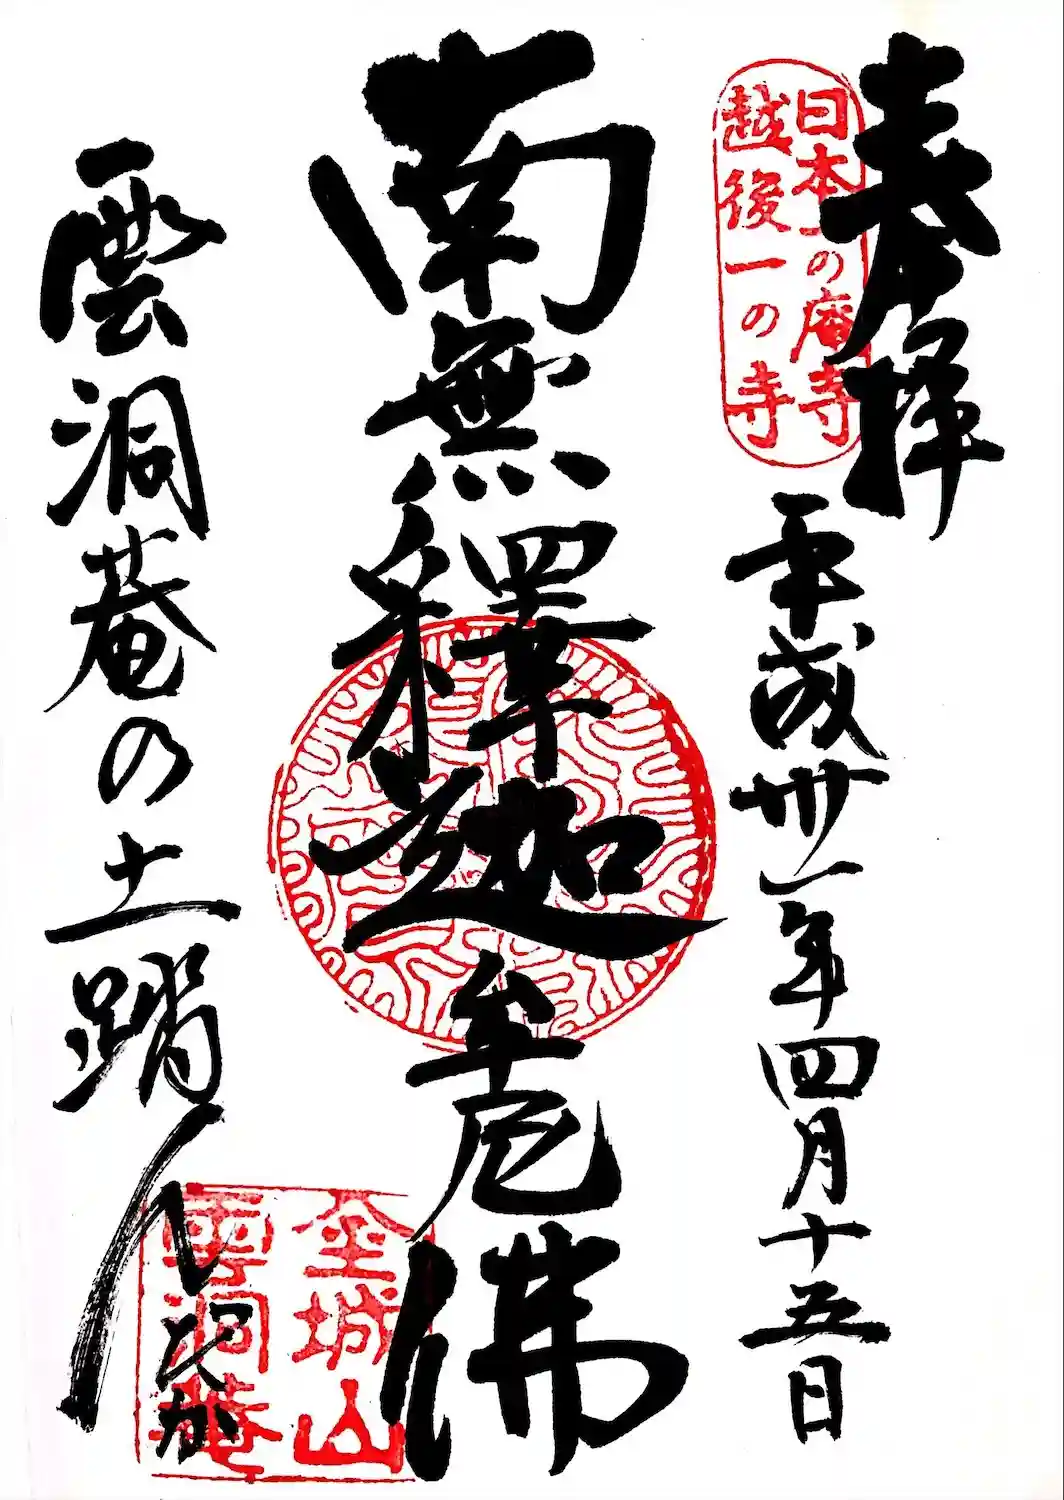 奉拝
日本一の庵寺
越後一の寺
平成卅一年四月十五日
南無釋迦牟尼佛
雲洞菴の土踏ん
だか
金城山
雲洞菴